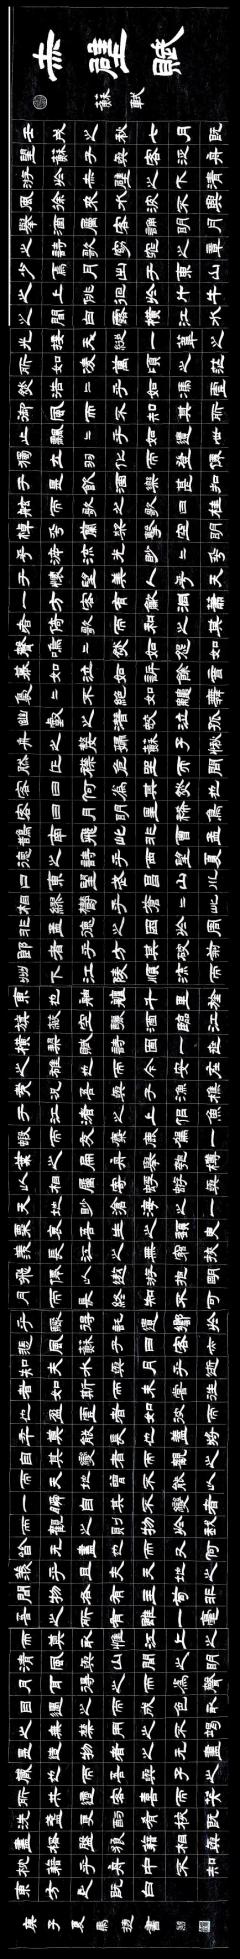 赤壁賦
蘇軾
壬戌之秋七月既
望蘇子與客泛舟
游於赤壁之下清
風徐來水波不興
舉酒屬客誦明月
之詩歌窈窕之章
少焉月出於東山
之上徘徊於斗牛
之間白露橫江水
光接天縱一葦之
所如凌萬頃之茫
然浩浩乎如馮虛
御風而不知其所
止飄飄乎如遺世
獨立羽化而登仙
於是飲酒樂甚扣
舷而歌之歌曰桂
棹兮蘭槳擊空明
兮溯流光渺渺兮
予懷望美人兮天
一方客有吹洞簫
者倚歌而和之其
聲嗚嗚然如怨如
慕如泣如訴餘音
裊裊不絕如縷舞
幽壑之潛蛟泣孤
舟之嫠婦蘇子愀
然正襟危坐而問
客曰何為其然也
客曰月明星稀烏
鵲南飛此非曹孟
德之詩乎西望夏
口東望武昌山川
相繆鬱乎蒼蒼此
非孟德之困於周
郎者乎方其破荊
州下江陵順流而
東也舳艫千里旌
旗蔽空釃酒臨江
橫槊賦詩固一世
之雄也而今安在
哉況吾與子漁樵
於江渚之上侶魚
蝦而友麋鹿駕一
葉之扁舟舉匏樽
以相屬寄蜉蝣於
天地渺滄海之一
粟哀吾生之須臾
羨長江之無窮挾
飛仙以遨遊抱明
月而長終知不可
乎驟得託遺響於
悲風蘇子曰客亦
知夫水與月乎逝
者如斯而未嘗往
也盈虛者如彼而
卒莫消長也蓋將
自其變者而觀之
而天地曾不能以
一瞬自其不變者
而觀之則物與我
皆無盡也而又何
羨乎且夫天地之
間物各有主苟非
吾之所有雖一毫
而莫取惟江上之
清風與山間之明
月耳得之而為聲
目遇之而成色取
之無禁用之不竭
是造物者之無盡
藏也而吾與子之
所共適客喜而笑
洗盞更酌肴核既
盡杯盤狼藉相與
枕藉乎舟中不知
東方之既白
庚子夏馬捷書